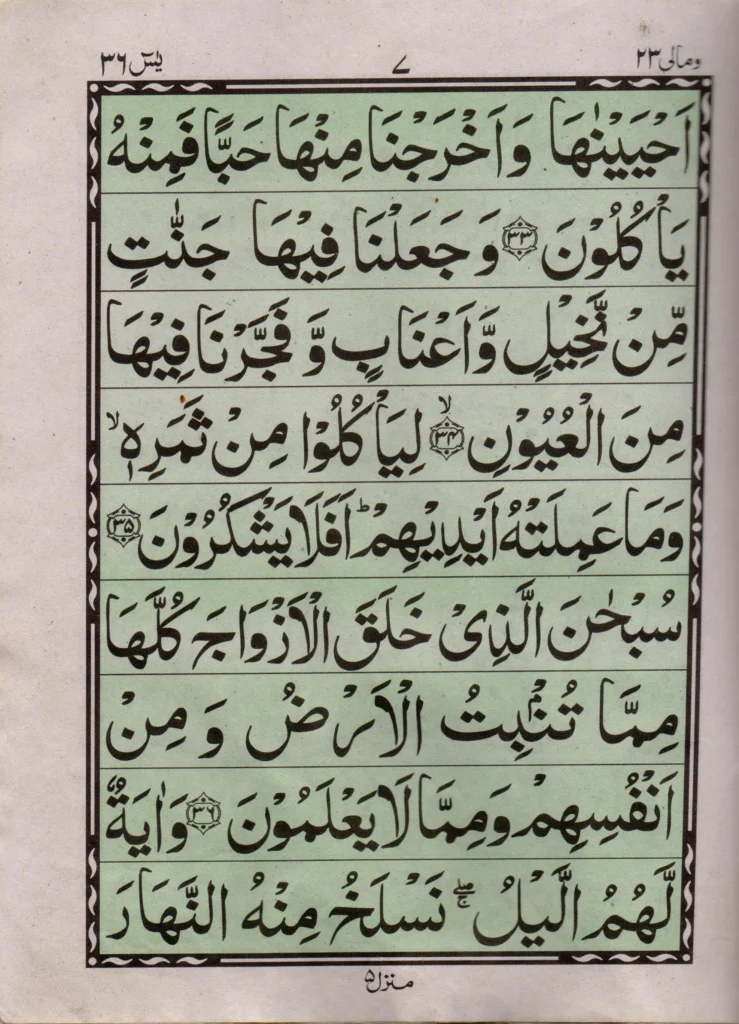 ومالی ۲۳ ۷ یٰسٓ ۳۶
اَحْیَیْنٰهَا وَ اَخْرَجْنَا مِنْهَا حَبًّا فَمِنْهُ
یَاْكُلُوْنَ ﴿۳۳﴾ وَ جَعَلْنَا فِیْهَا جَنّٰتٍ
مِّنْ نَّخِیْلٍ وَّ اَعْنَابٍ وَّ فَجَّرْنَا فِیْهَا
مِنَ الْعُیُوْنِ ﴿۳۴﴾ۙ لِیَاْكُلُوْا مِنْ ثَمَرِهٖ ۙ
وَ مَا عَمِلَتْهُ اَیْدِیْهِمْ ؕ اَفَلَا یَشْكُرُوْنَ ﴿۳۵﴾
سُبْحٰنَ الَّذِیْ خَلَقَ الْاَزْوَاجَ كُلَّهَا
مِمَّا تُنْۢبِتُ الْاَرْضُ وَ مِنْ
اَنْفُسِهِمْ وَ مِمَّا لَا یَعْلَمُوْنَ ﴿۳۶﴾ وَ اٰیَةٌ
لَّهُمُ الَّیْلُ ۖۚ نَسْلَخُ مِنْهُ النَّهَارَ
منزل ۵